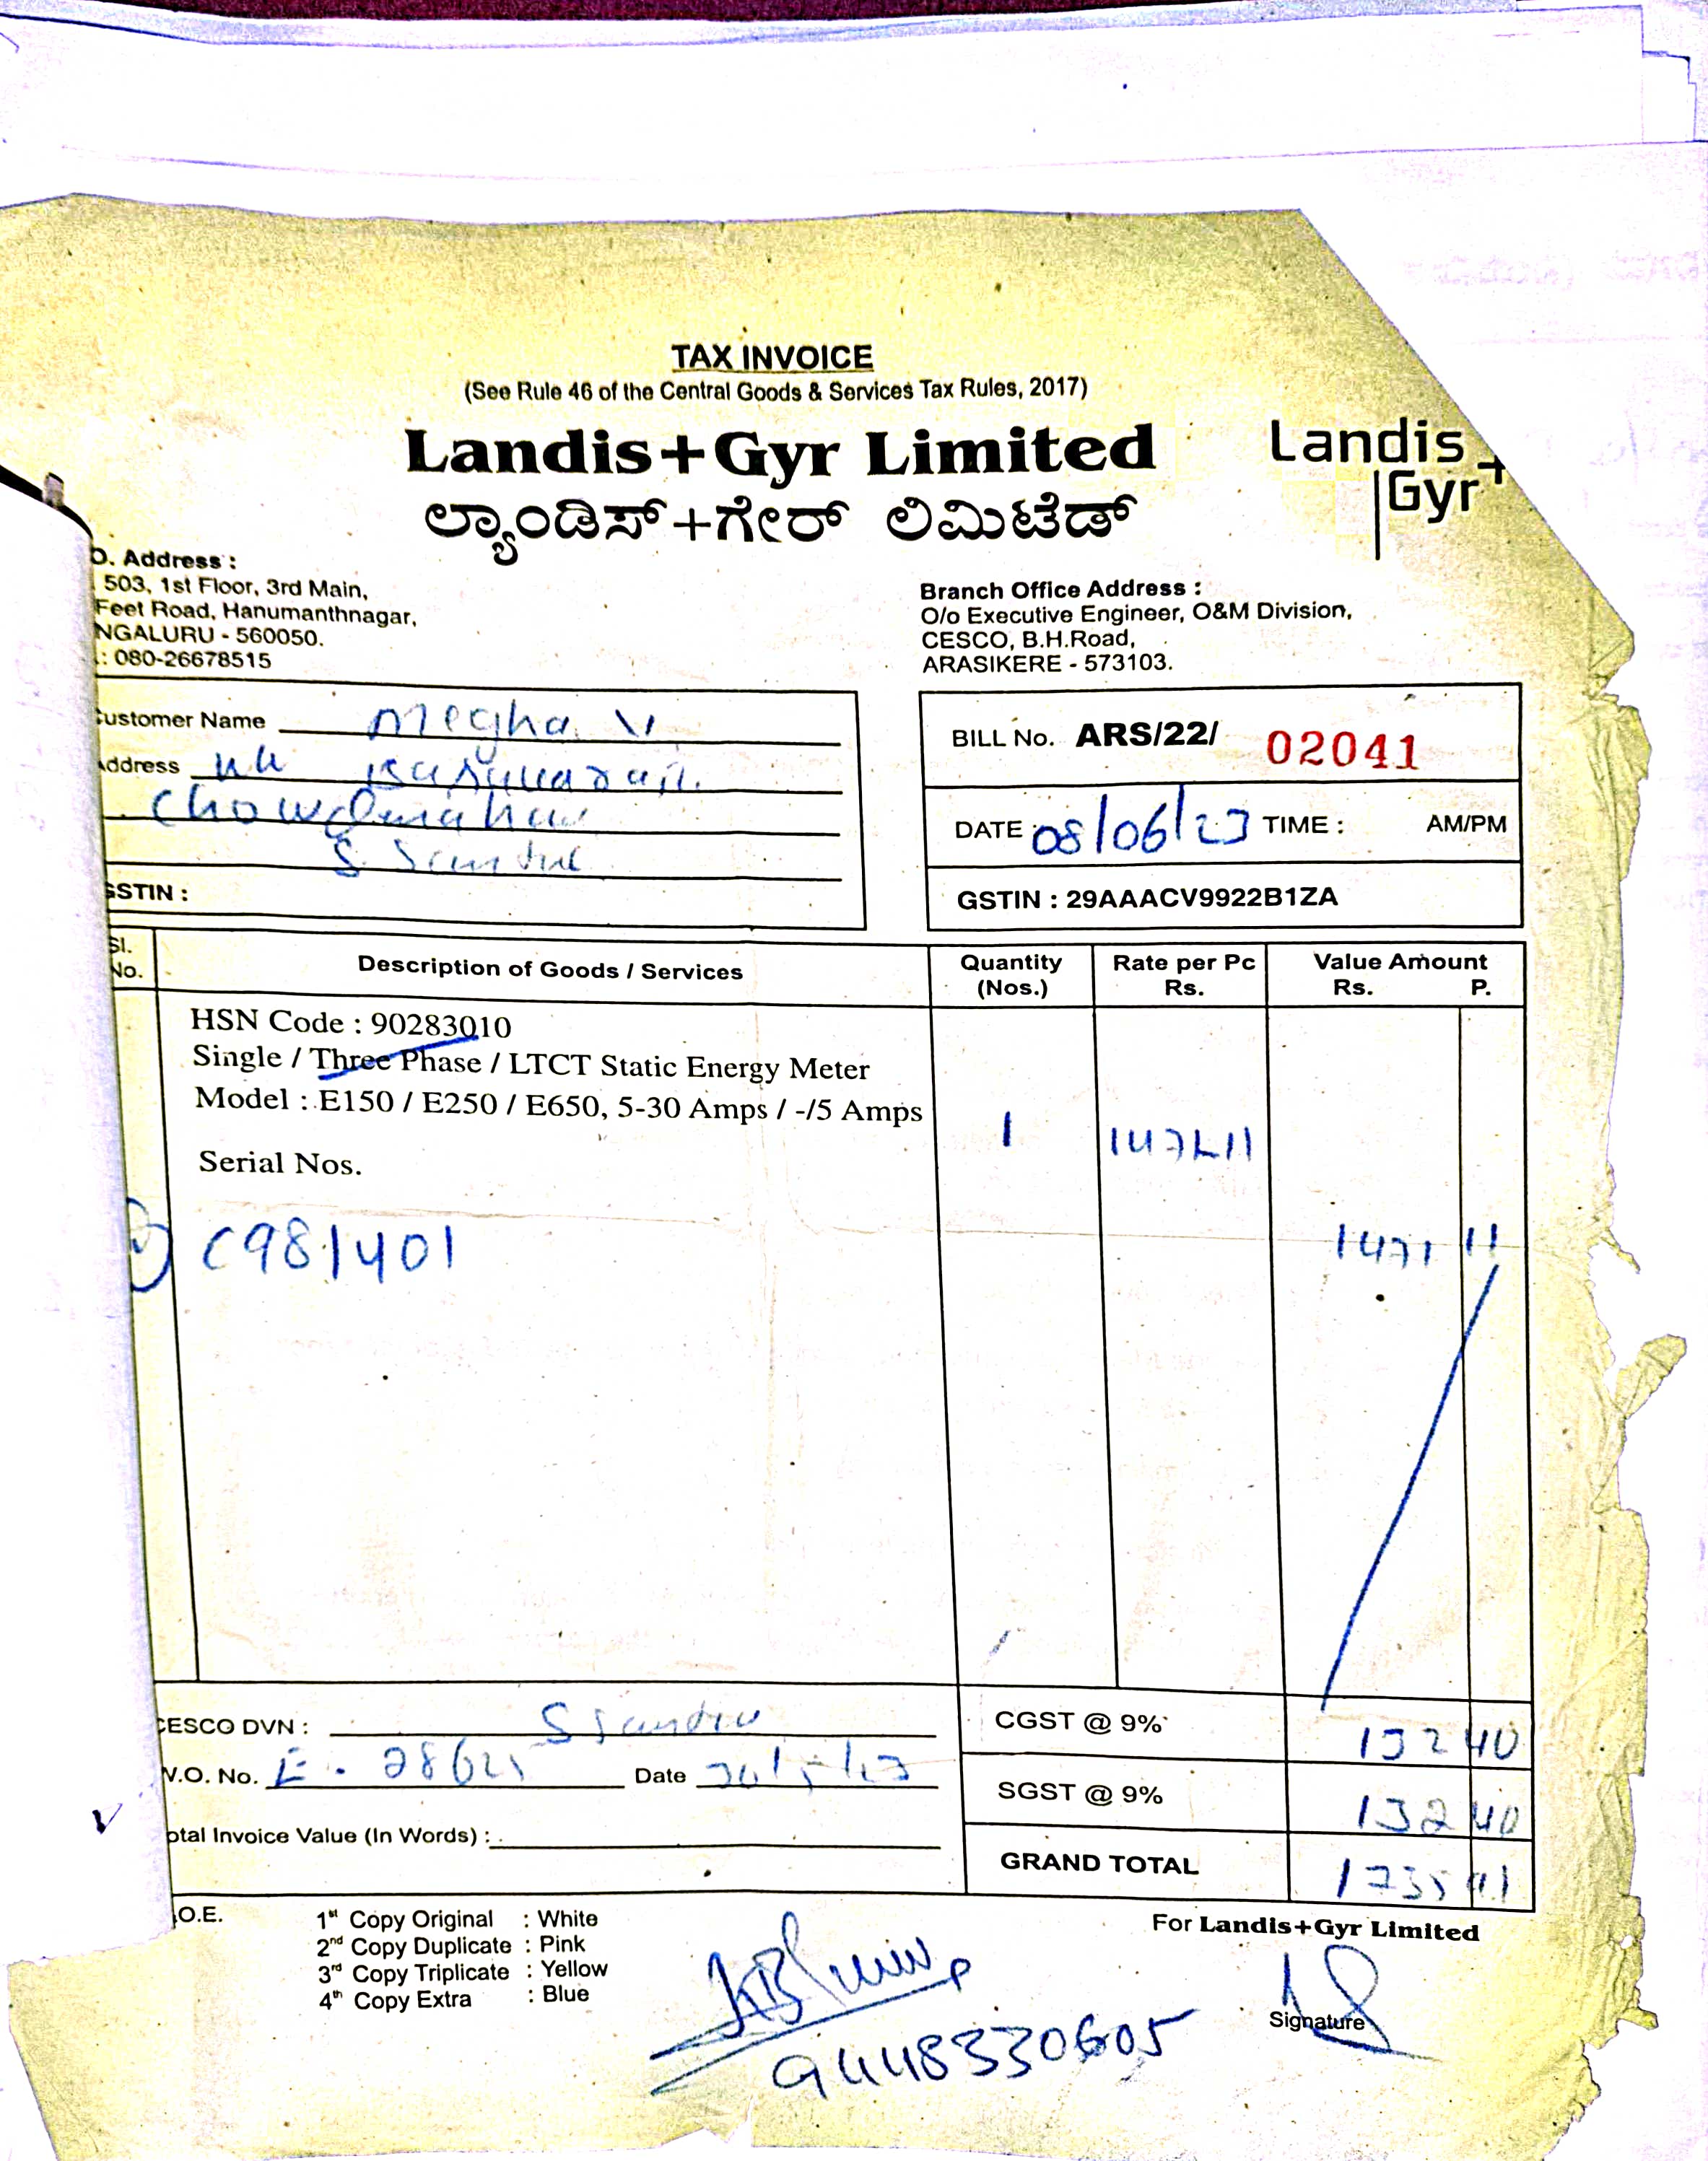 TAX INVOICE
(See Rule 46 of the Central Goods & Services Tax Rules, 2017)
Landis+Gyr Limited
Landis
Gyr+
ಲ್ಯಾಂಡಿಸ್+ಗೇರ್ ಲಿಮಿಟೆಡ್
O. Address :
503, 1st Floor, 3rd Main,
Feet Road, Hanumanthnagar,
NGALURU - 560050.
: 080-26678515
Branch Office Address :
O/o Executive Engineer, O&M Division,
CESCO, B.H.Road,
ARASIKERE - 573103.
ustomer Name Megha V
ddress
GSTIN :
BILL No. ARS/22/ 02041
DATE 08/06/23 TIME : AM/PM
GSTIN : 29AAACV9922B1ZA
Sl. No. Description of Goods / Services Quantity (Nos.) Rate per Pc Rs. Value Amount Rs. P.
HSN Code : 90283010
Single / Three Phase / LTCT Static Energy Meter
Model : E150 / E250 / E650, 5-30 Amps / -/5 Amps
1
Serial Nos.
C981401 1471 11
CESCO DVN :
W.O. No. Date
otal Invoice Value (In Words) :
CGST @ 9% 132 40
SGST @ 9% 132 40
GRAND TOTAL 1735 91
.O.E.
1st Copy Original : White
2nd Copy Duplicate : Pink
3rd Copy Triplicate : Yellow
4th Copy Extra : Blue
For Landis+Gyr Limited
Signature
9448330605